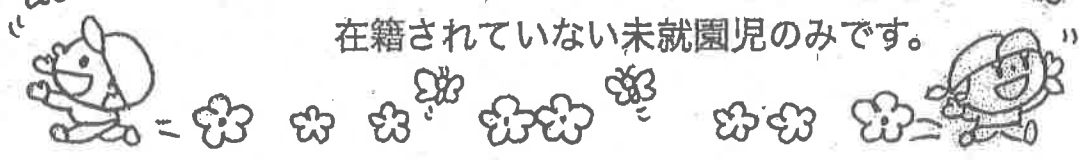 在籍されていない未就園児のみです。